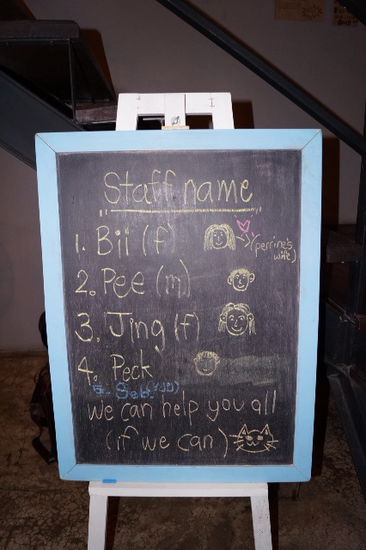 Staff name
1. Bii (f) (perrine's wife)
2. Pee (m)
3. Jing (f)
4. Peck
5. Seb.
we can help you all
(if we can)